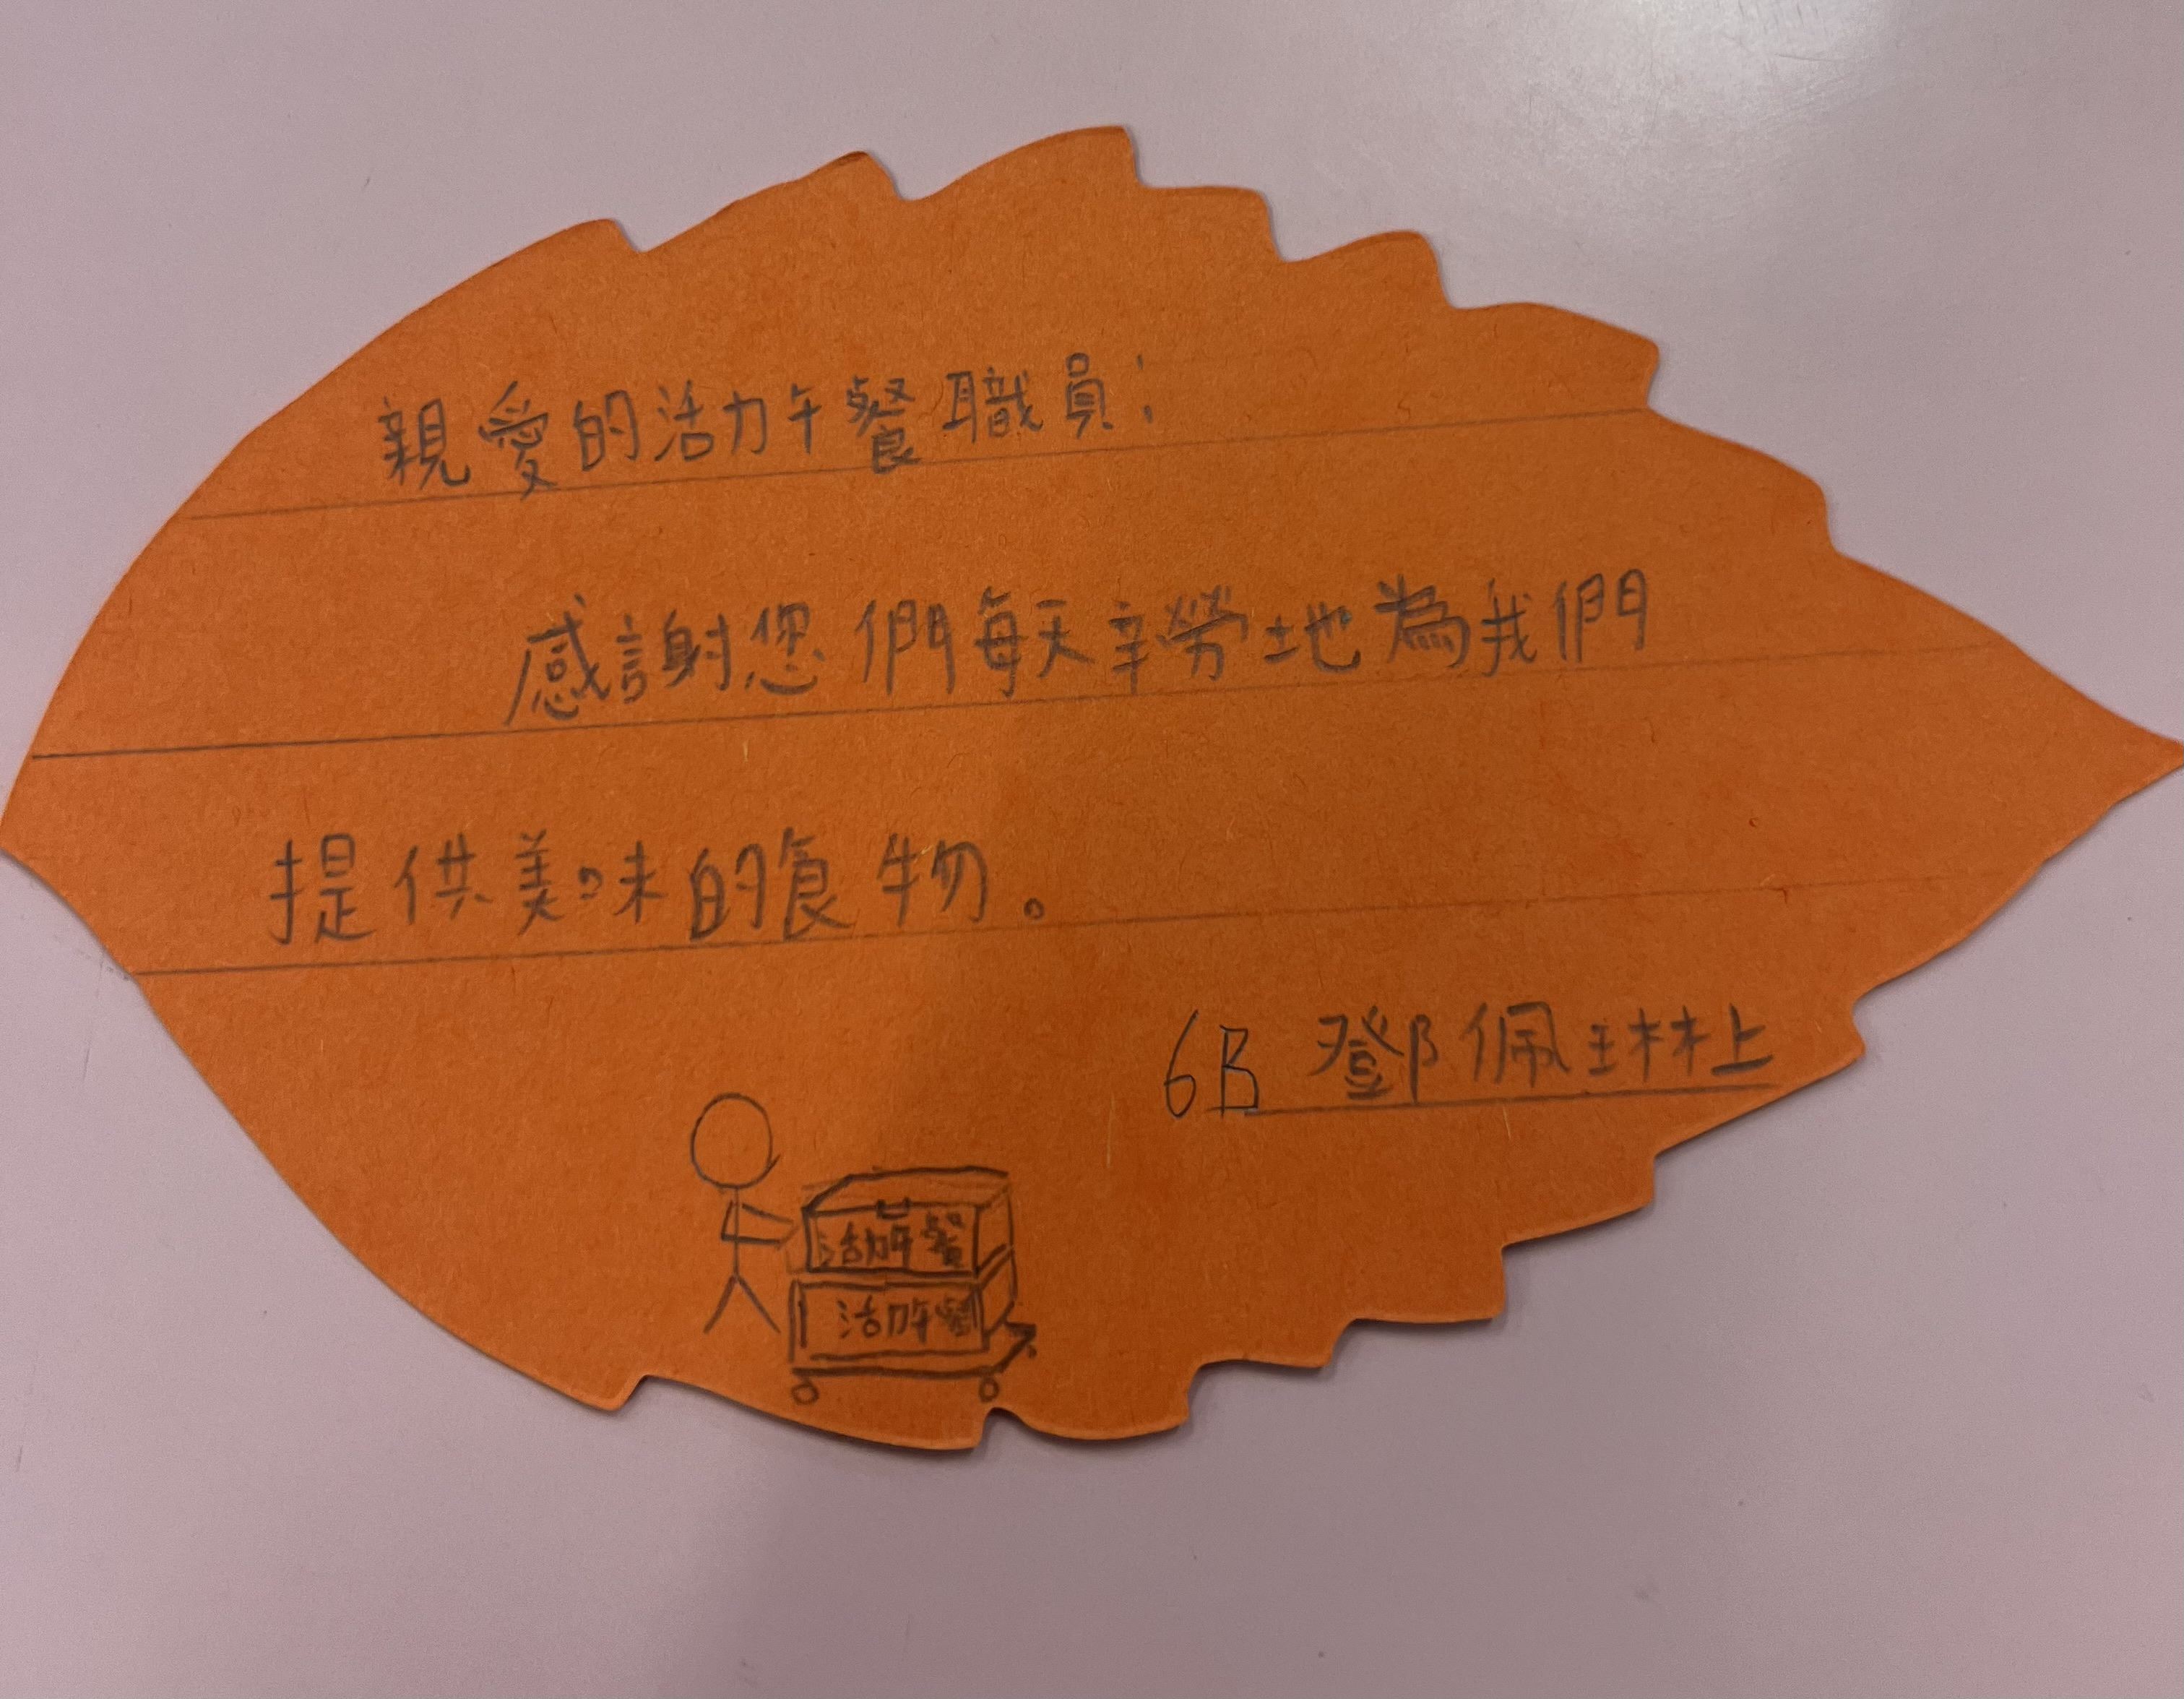 親愛的活力午餐職員：
感謝您們每天辛勞地為我們
提供美味的食物。
6B 鄧佩琳上
活力午餐
活力午餐